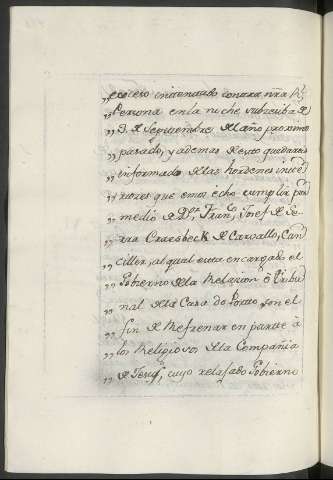 „ croiero intentado contra nrã Rl
„ Persona en la noche subzeciba de
„ 3. de Septiembre del año proximo
„ pasado, y ademas de esto quedarais
„ informado de las hordenes inte
„ riores que emos echo cumplir por
„ medio de Dn. Franco. Josef de Se-
„ rra Craesbeck de Carvallo, Can
„ ciller, al qual esta encargado el
„ Gobierno de la Relasion ô Tribu
„ nal de la Casa de Porto, con el
„ fin de Refrenar en parte â
„ los Religiosos de la Compañia
„ de Jesus, cuyo relajado Gobierno